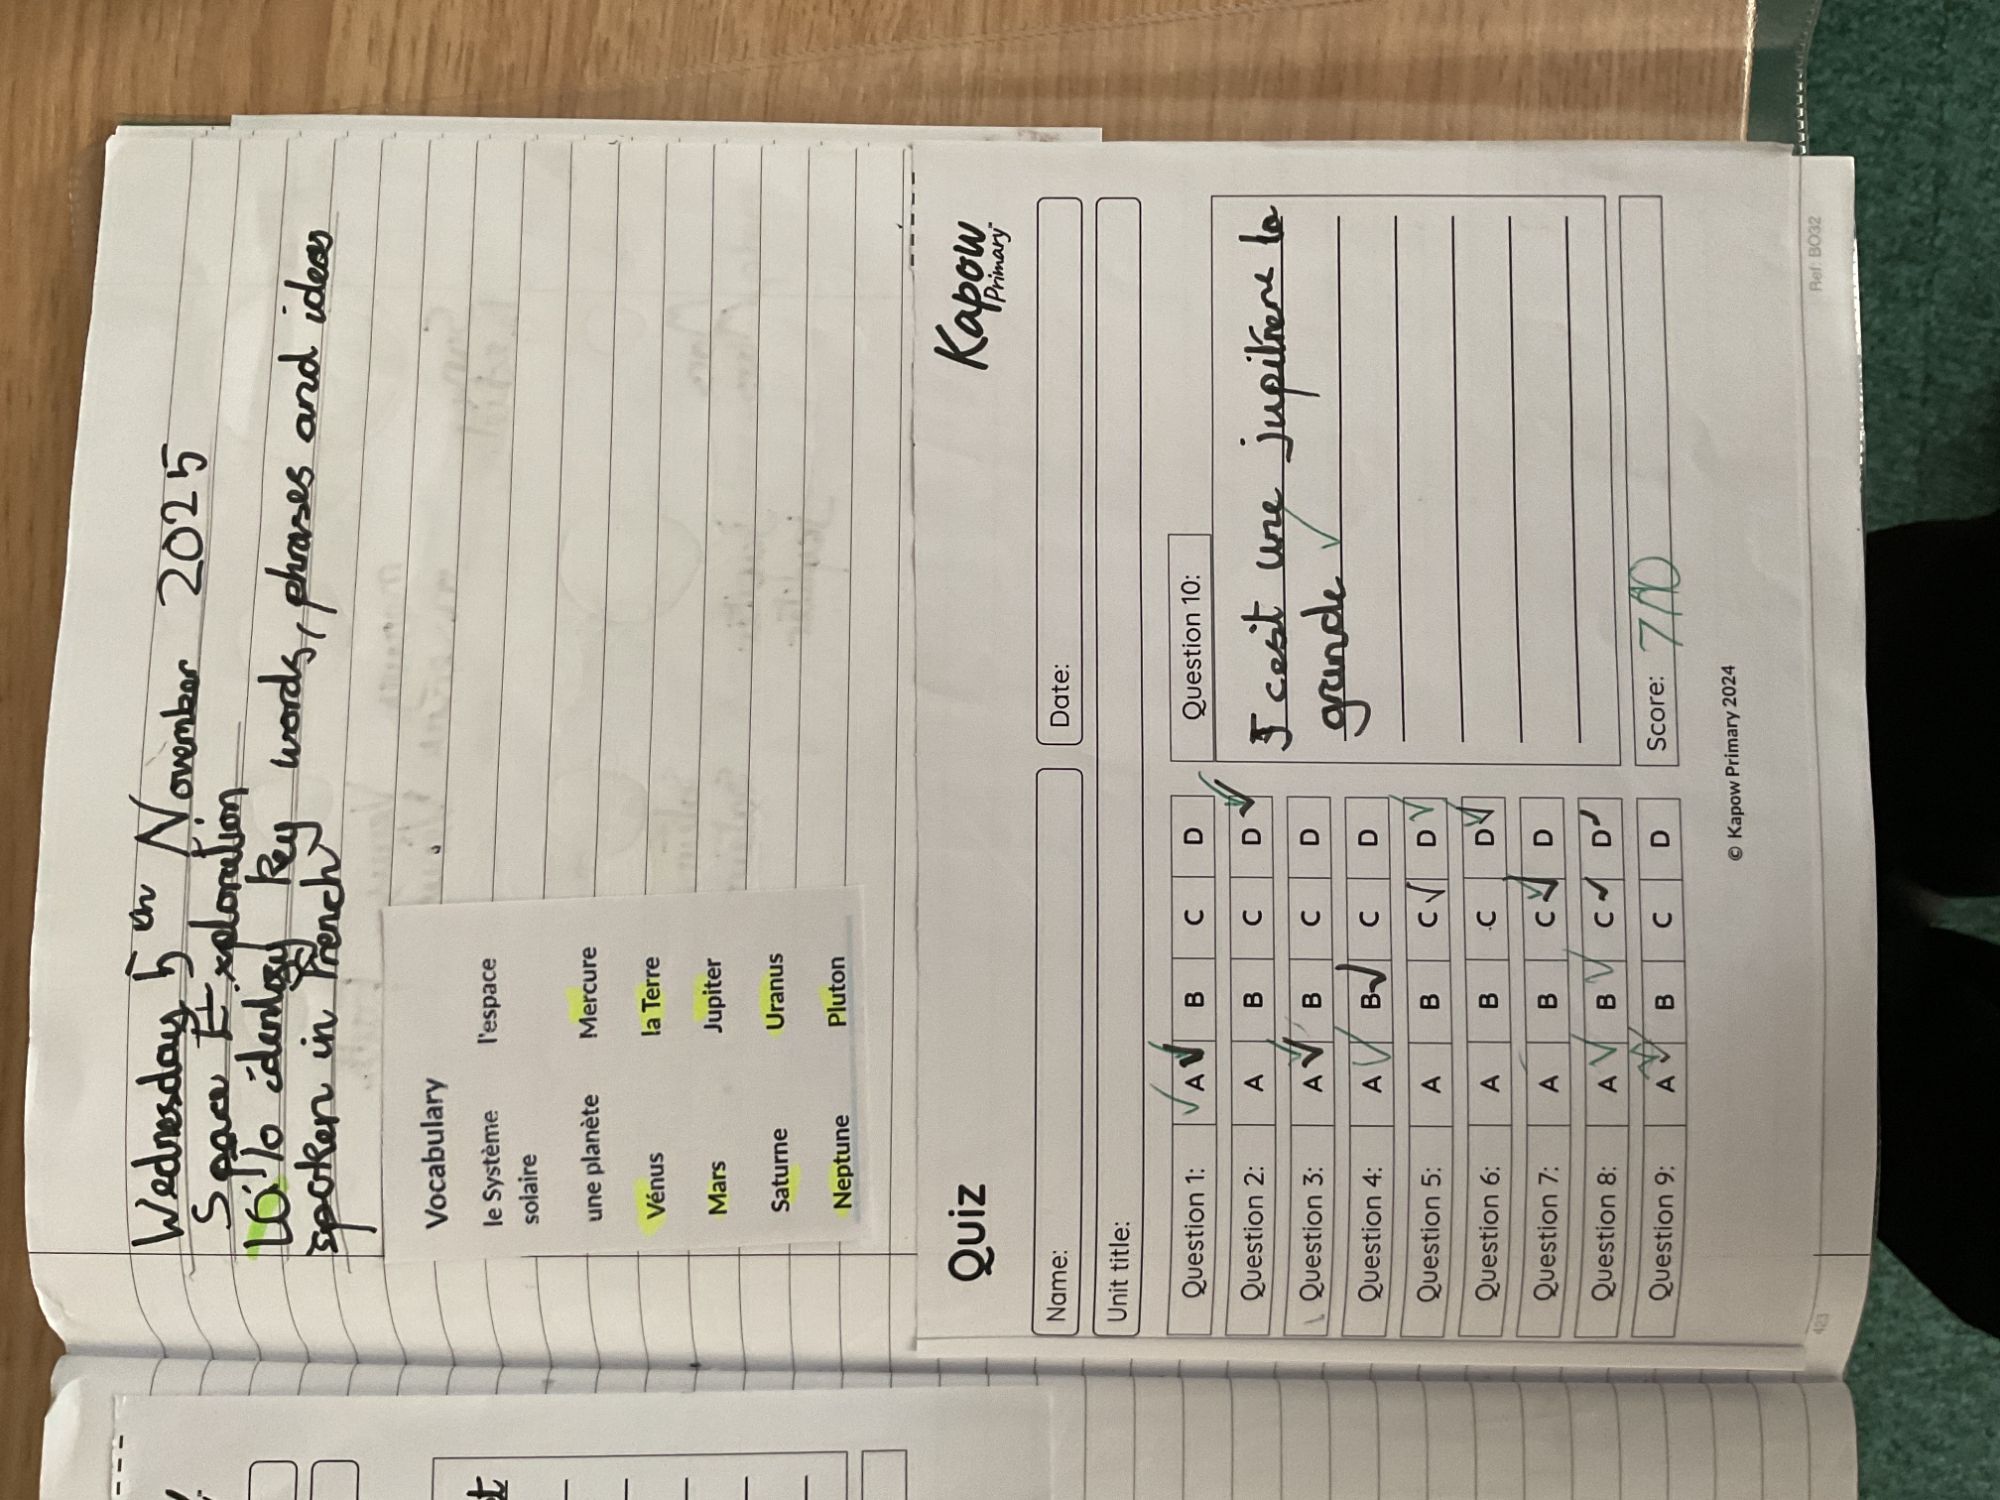 Wednesday 5th November 2025
Space Exploration
LO: To identify key words, phrases and ideas
spoken in French
Vocabulary
le Système solaire
l'espace
une planète
Mercure
Vénus
la Terre
Mars
Jupiter
Saturne
Uranus
Neptune
Pluton
Quiz
Kapow
Primary
Name:
Date:
Unit title:
Question 1: A B C D
Question 2: A B C D
Question 3: A B C D
Question 4: A B C D
Question 5: A B C D
Question 6: A B C D
Question 7: A B C D
Question 8: A B C D
Question 9: A B C D
Question 10:
cest une jupitrene la
grande
Score: 7/10
© Kapow Primary 2024
Ref: BO32